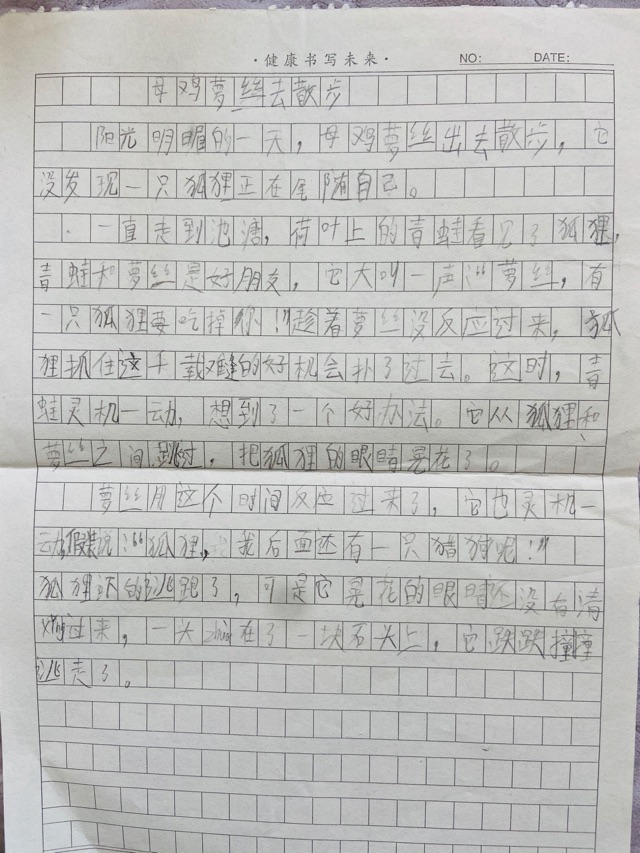 ·健康书写未来·
NO: DATE:
母鸡萝丝去散步
阳光明媚的一天，母鸡萝丝出去散步，它
没发现一只狐狸正在尾随自己。
一直走到池溏，荷叶上的青蛙看见了狐狸，
青蛙和萝丝是好朋友，它大叫一声：“萝丝，有
一只狐狸要吃掉你！”趁着萝丝没反应过来，狐
狸抓住这千载难逢的好机会扑了过去。这时，青
蛙灵机一动，想到了一个好办法。它从狐狸和
萝丝之间跳过，把狐狸的眼睛晃花了。
萝丝用这个时间反应过来了，它也灵机一
动假装说：“狐狸，我后面还有一只猎狗呢！”
狐狸吓的逃跑了，可是它晃花的眼睛还没有清
xǐng过来，一头zhuàng在了一块石头上，它跌跌撞撞
逃走了。